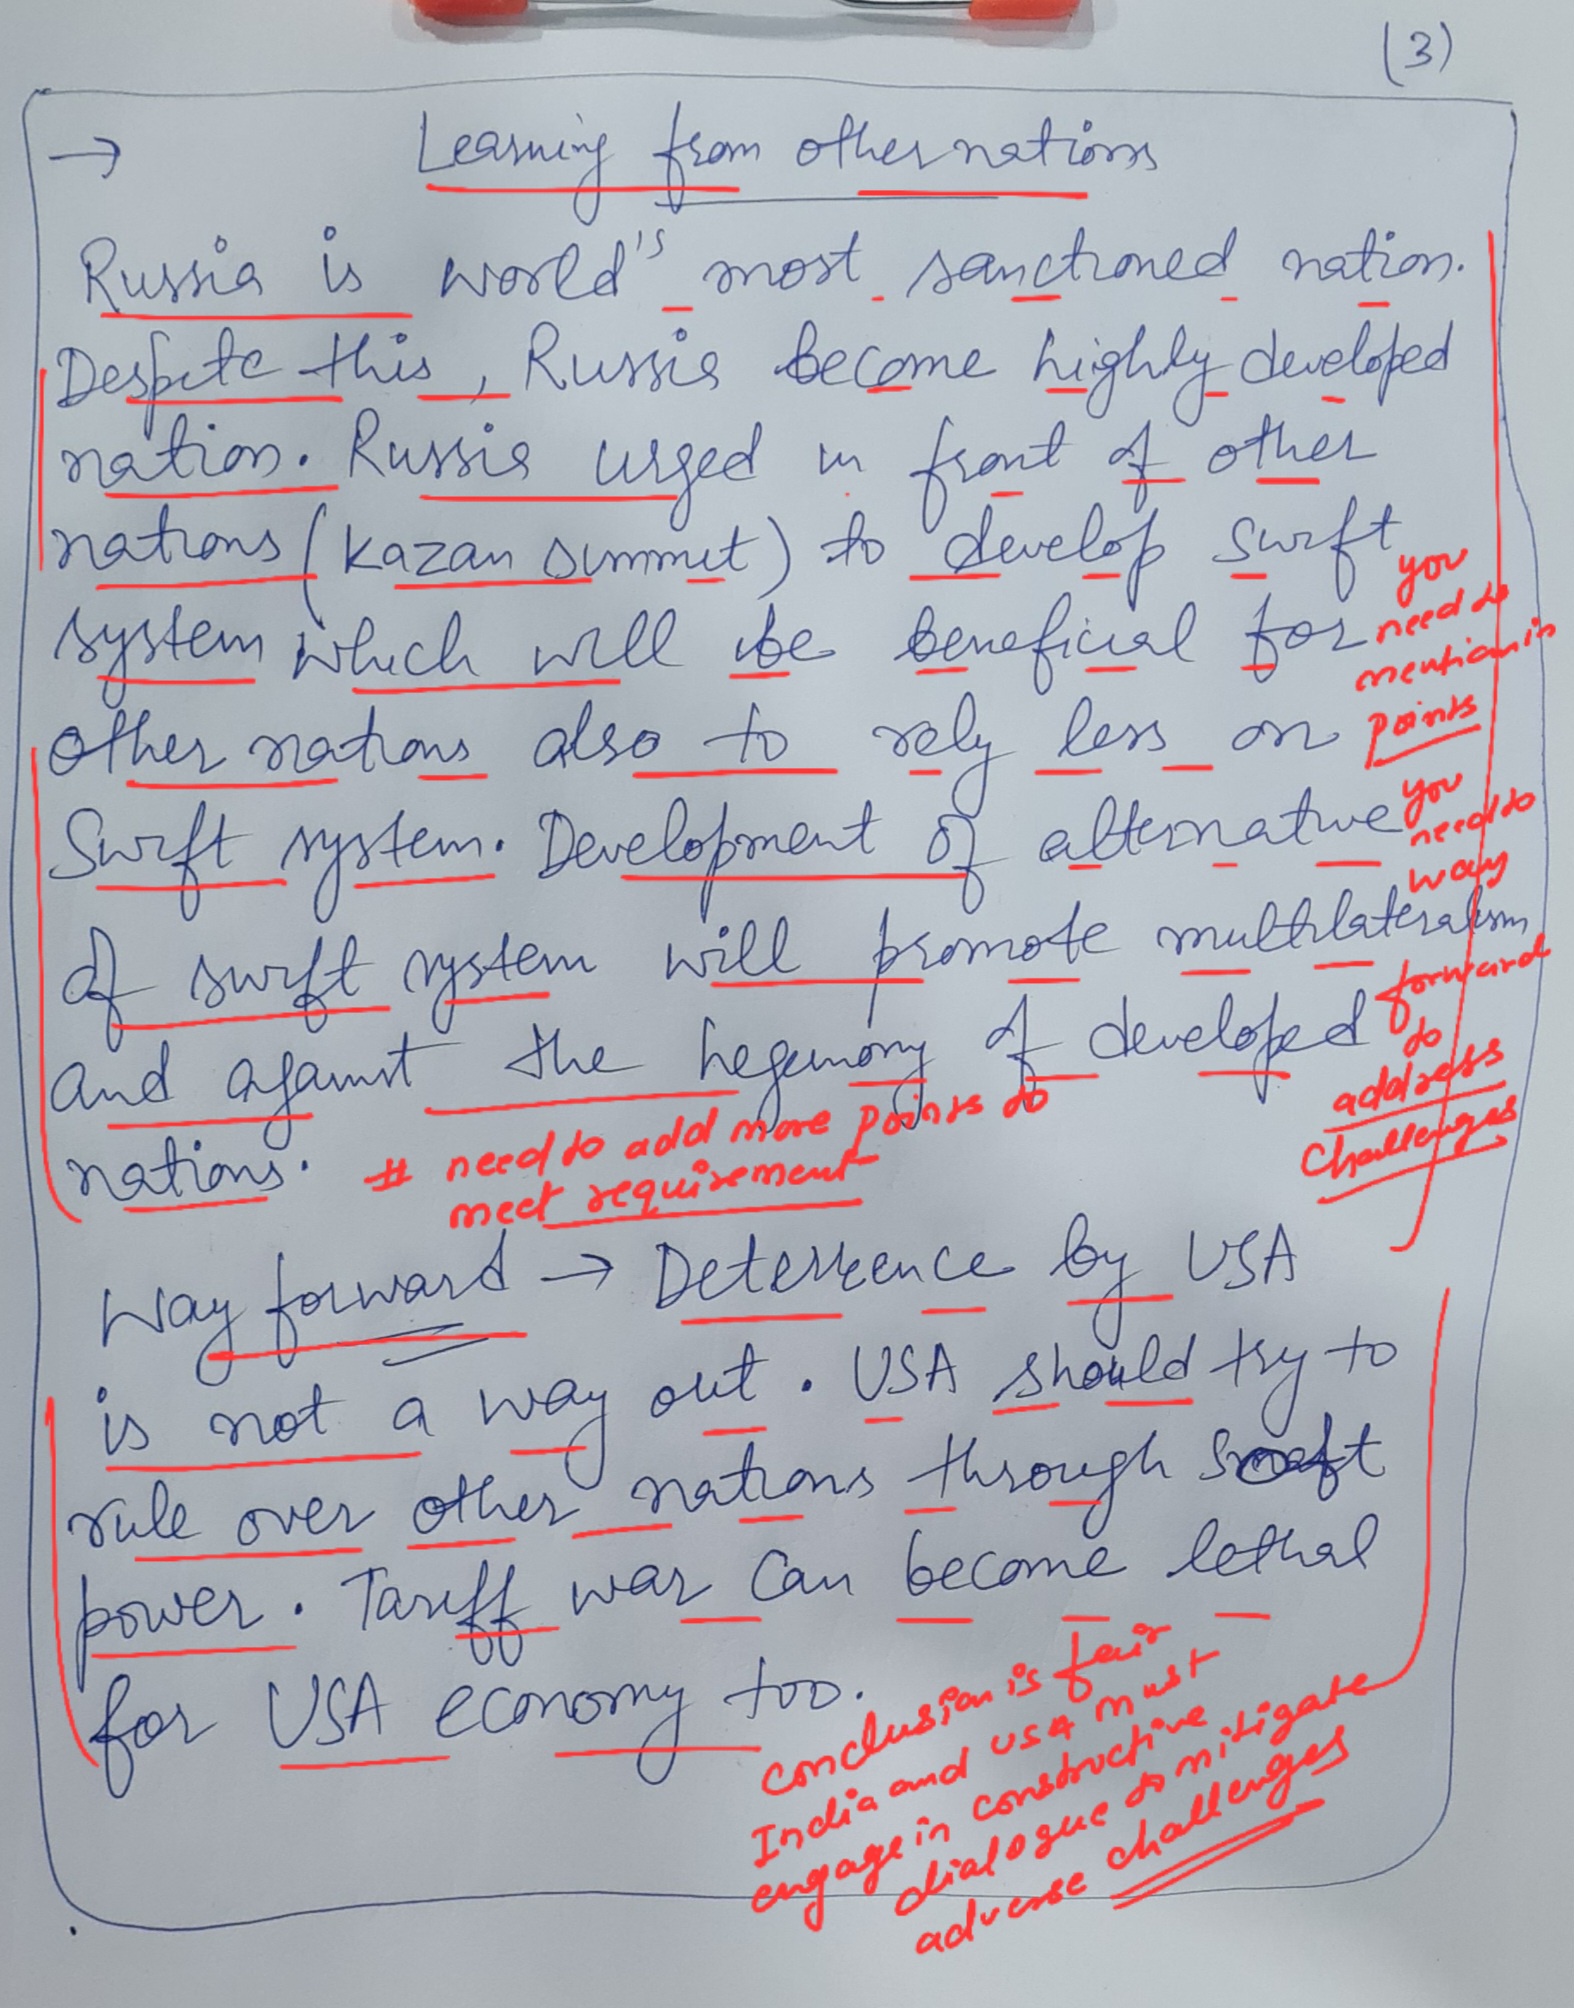 (3)
→ Learning from other nations
Russia is world's most sanctioned nation.
Despite this, Russia become highly developed
nation. Russia urged in front of other
nations (Kazan summit) to develop swift
system which will be beneficial for
other nations also to rely less on
Swift system. Development of alternative
of swift system will promote multilateralism
and against the hegemony of developed
nations.
you
need to
mention in
points
you
need to
way
forward
to
address
challenges
# need to add more points to
meet requirement
Way forward → Deterrence by USA
is not a way out. USA should try to
rule over other nations through soft
power. Tariff war can become lethal
for USA economy too.
conclusion is fair
India and USA must
engage in constructive
dialogue to mitigate
adverse challenges